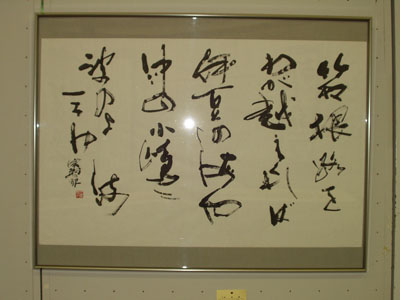 箱根路を
わが越えくれば
伊豆の海や
沖の小嶋に
波のよる
みゆ